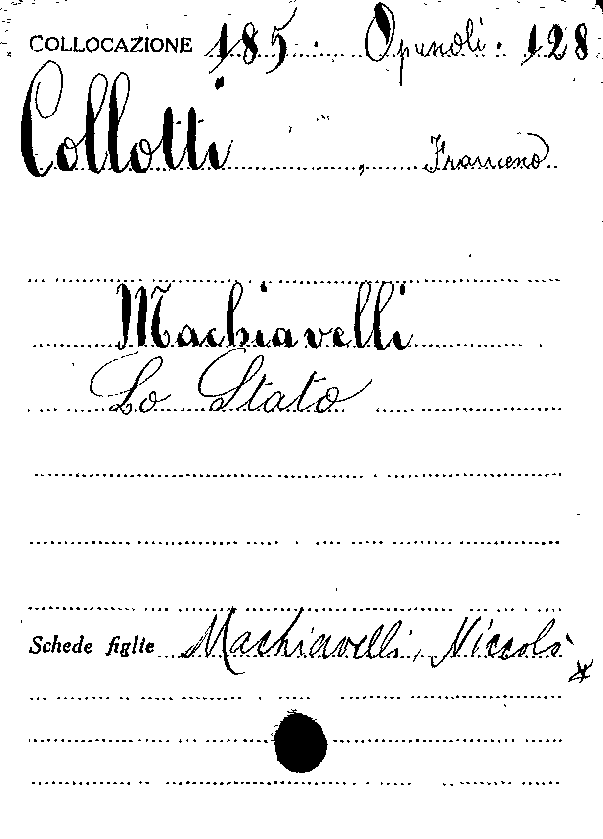 COLLOCAZIONE 185. Opuscoli. 128
Collotti, Francesco
Machiavelli
Lo Stato
Schede figlie Machiavelli, Niccolò